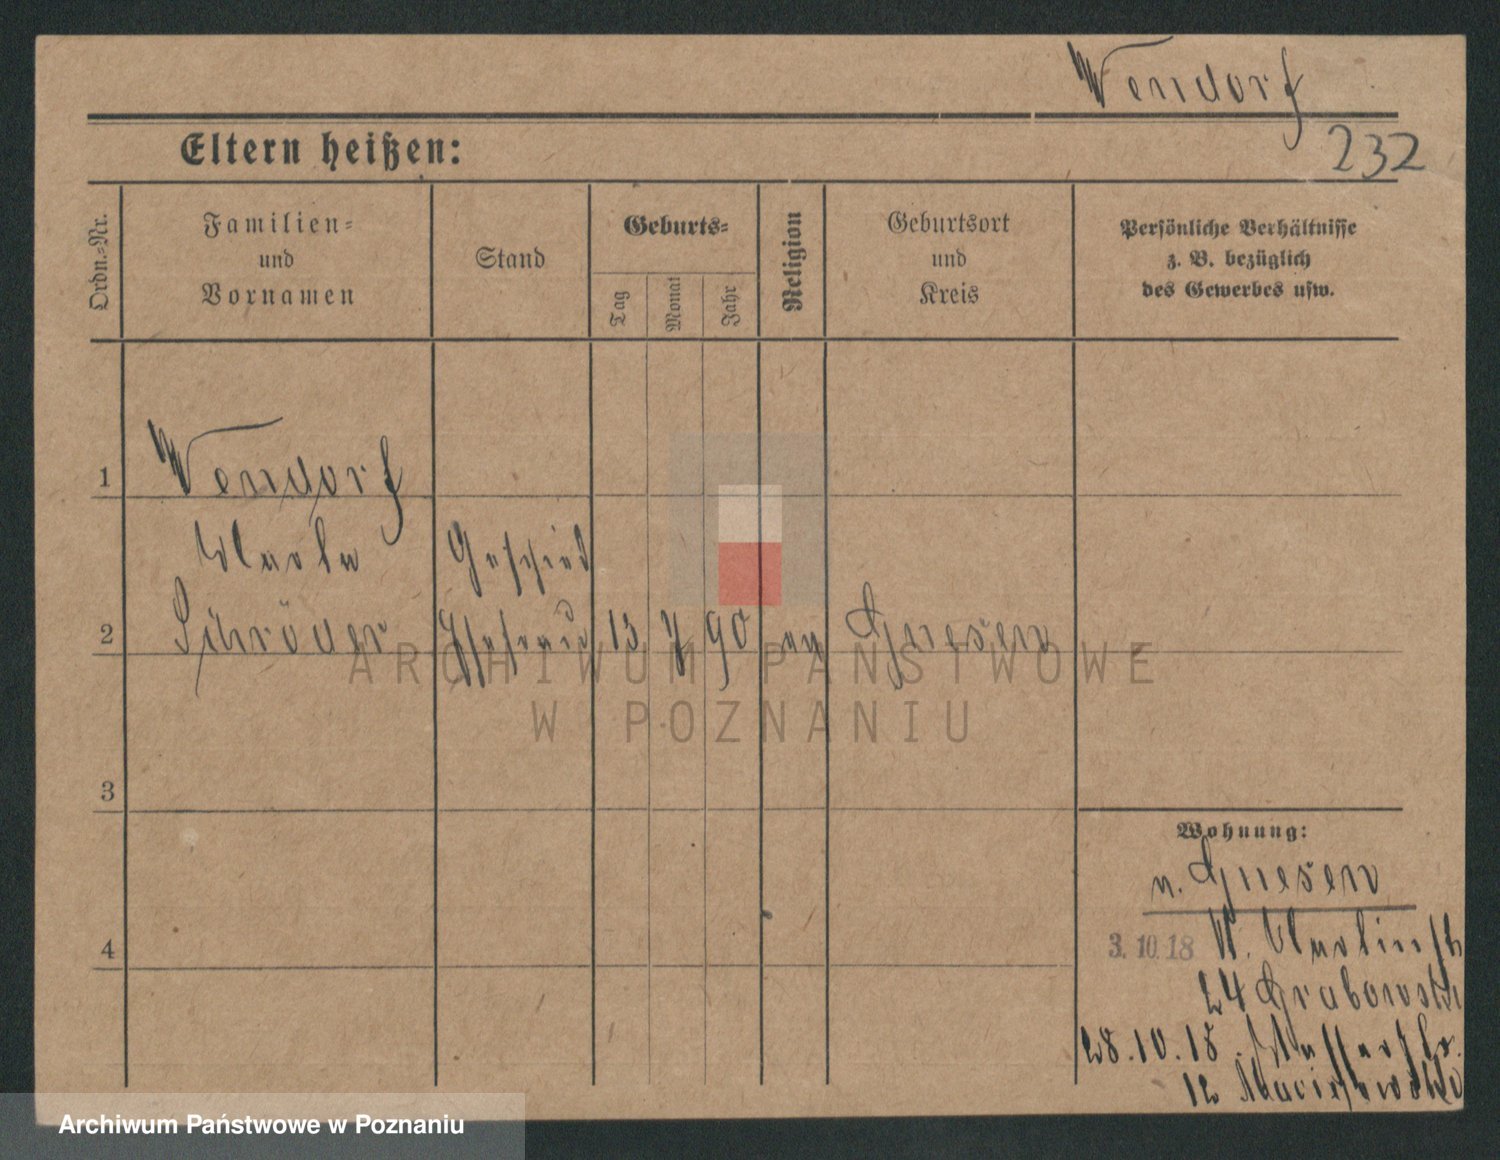 Wendorf
232
Eltern heißen:
Ordn.-Nr.
Familien-
und
Vornamen
Stand
Geburts-
Tag
Monat
Jahr
Religion
Geburtsort
und
Kreis
Persönliche Verhältnisse
z. B. bezüglich
des Gewerbes usw.
1
Wendorf
2
Schröder
13 7 90 ev Gnesen
ARCHIWUM PAŃSTWOWE
W POZNANIU
3
Wohnung:
n. Gnesen
4
3.10.18
24 Grabowski
28.10.18. Wasserstr.
12
Archiwum Państwowe w Poznaniu